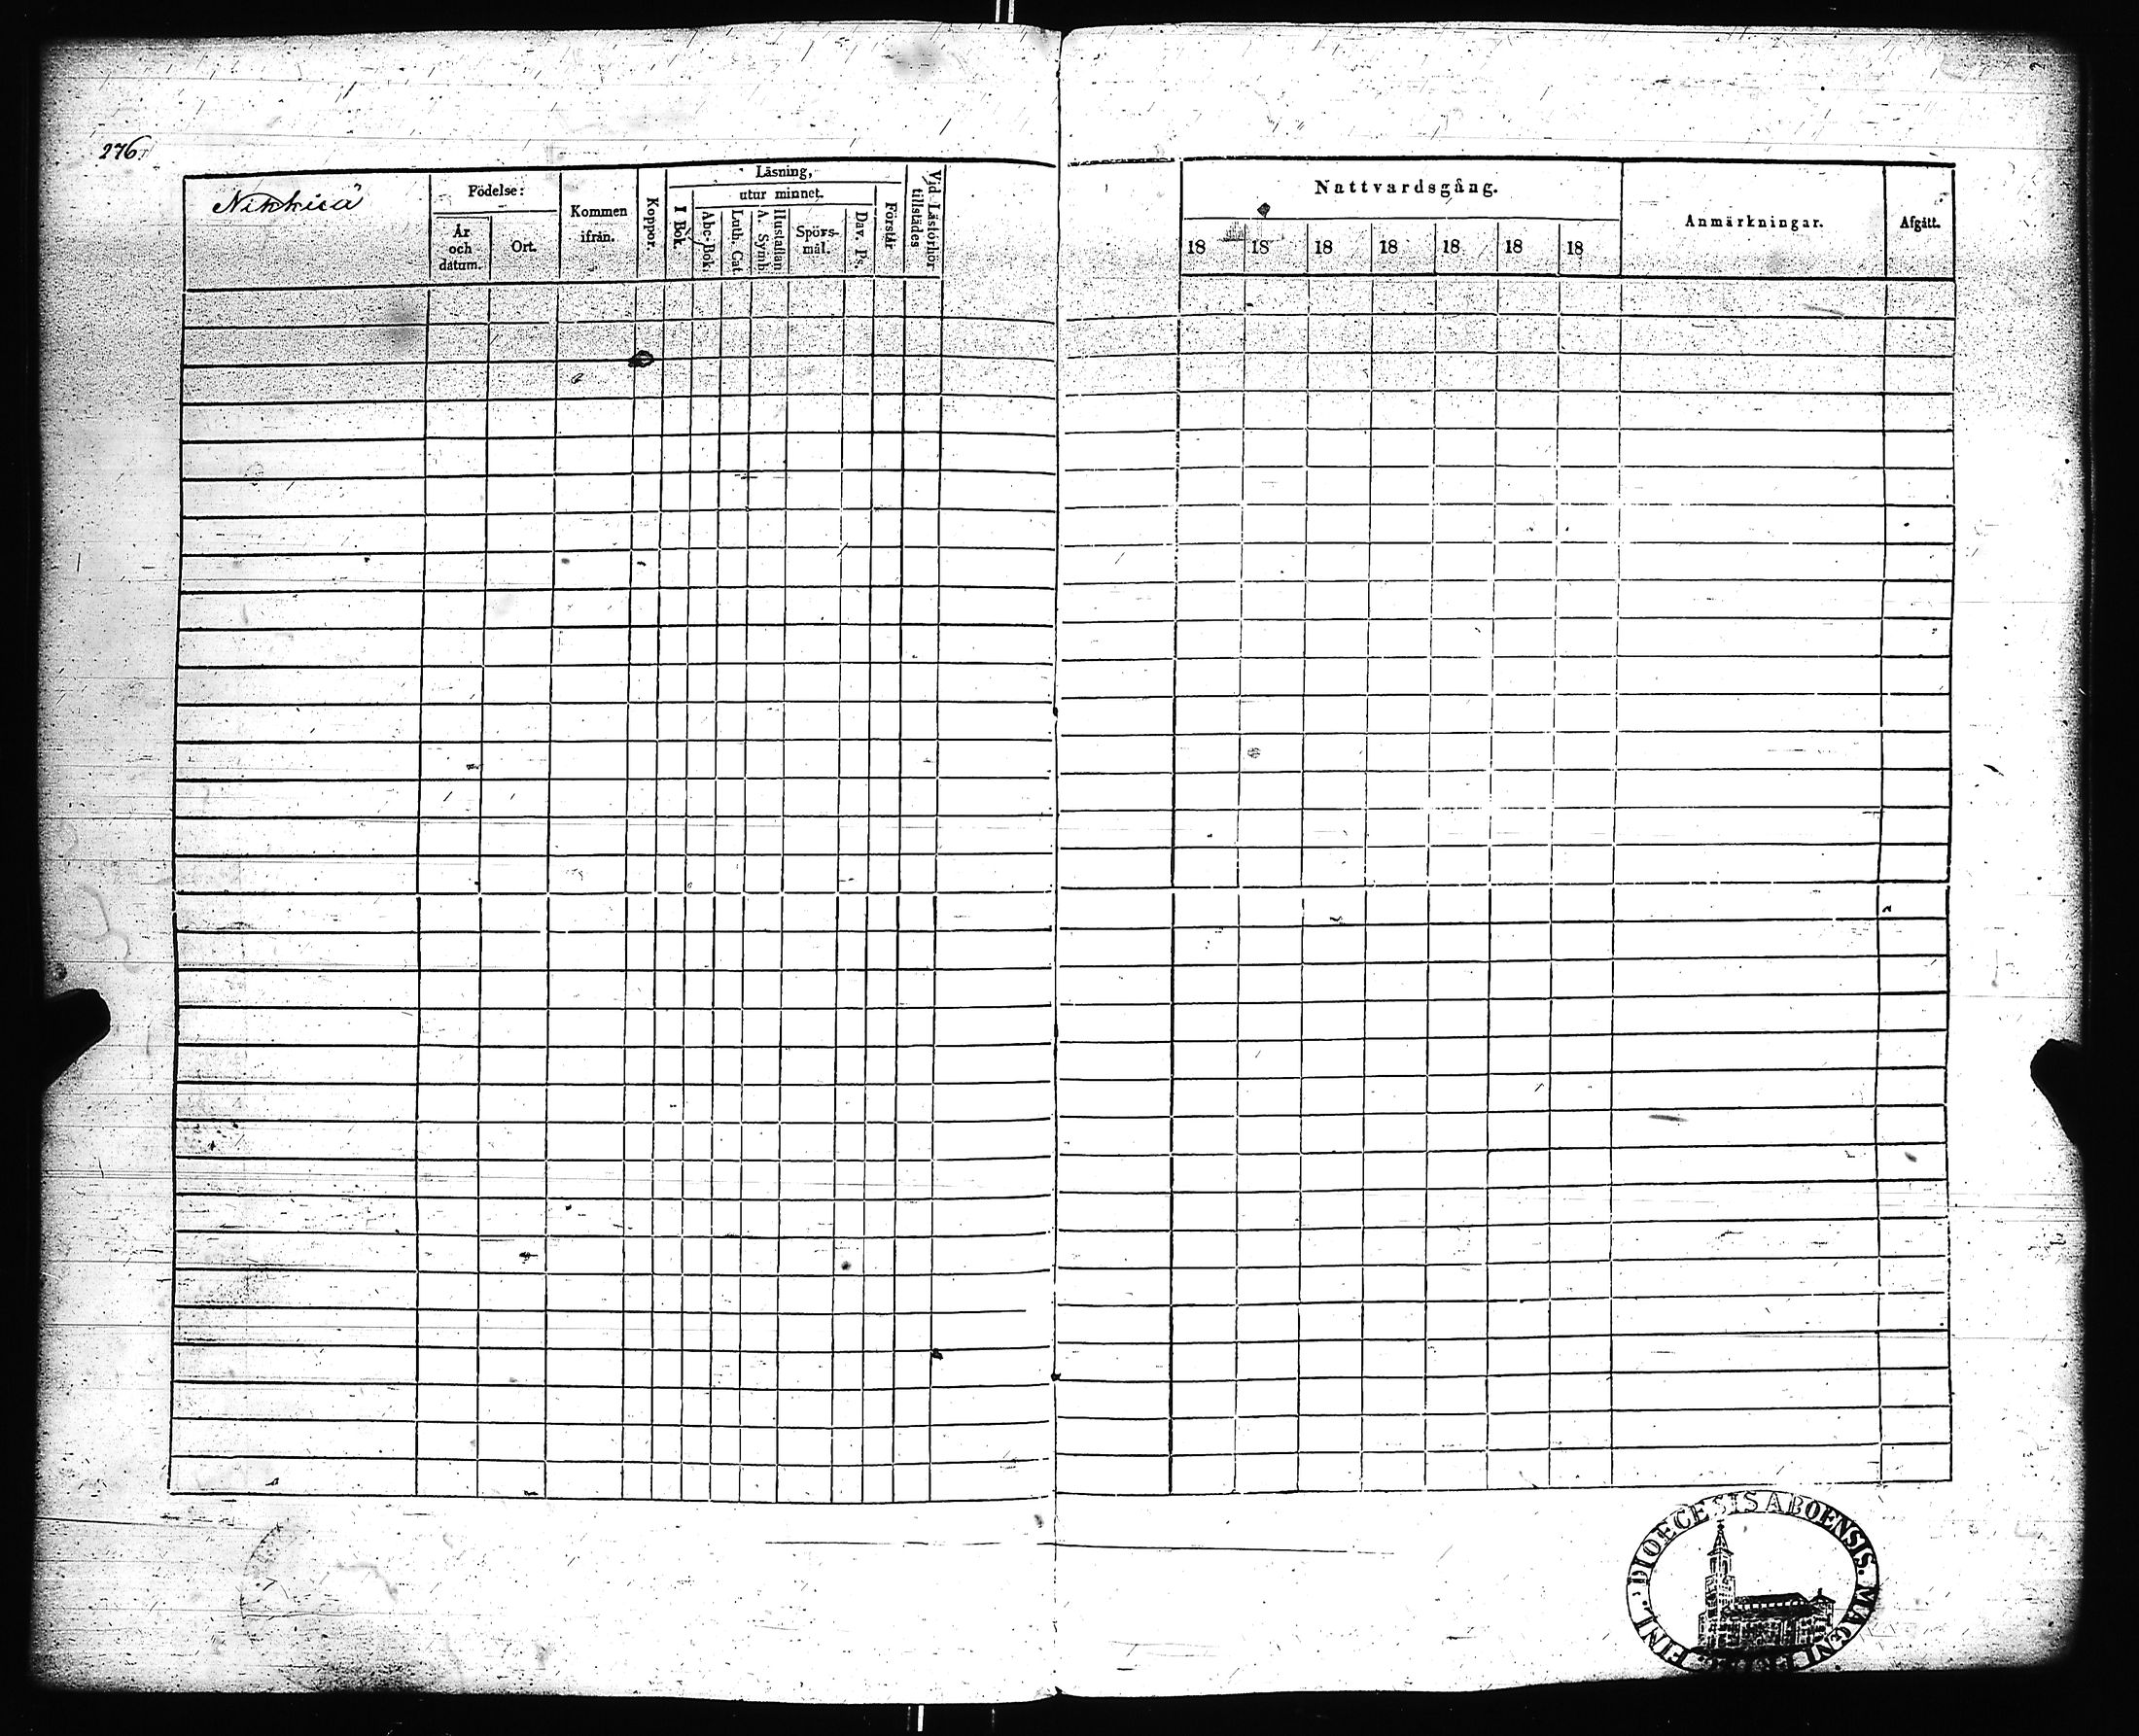 276.
Nikkilä
Födelse:
År och datum.
Ort.
Kommen ifrån.
Koppor.
Läsning,
utur minnet.
I Bok.
Abc-Bok.
Luth. Cat.
Hustaflan
A. Symb.
Spörs-
mål.
Dav. Ps.
Förstår
Vid Läsförhör
tillstädes
Nattvardsgång.
18 18 18 18 18 18 18
Anmärkningar.
Afgått.
DIOECESIS ABOENSIS. MAGNI FINL.